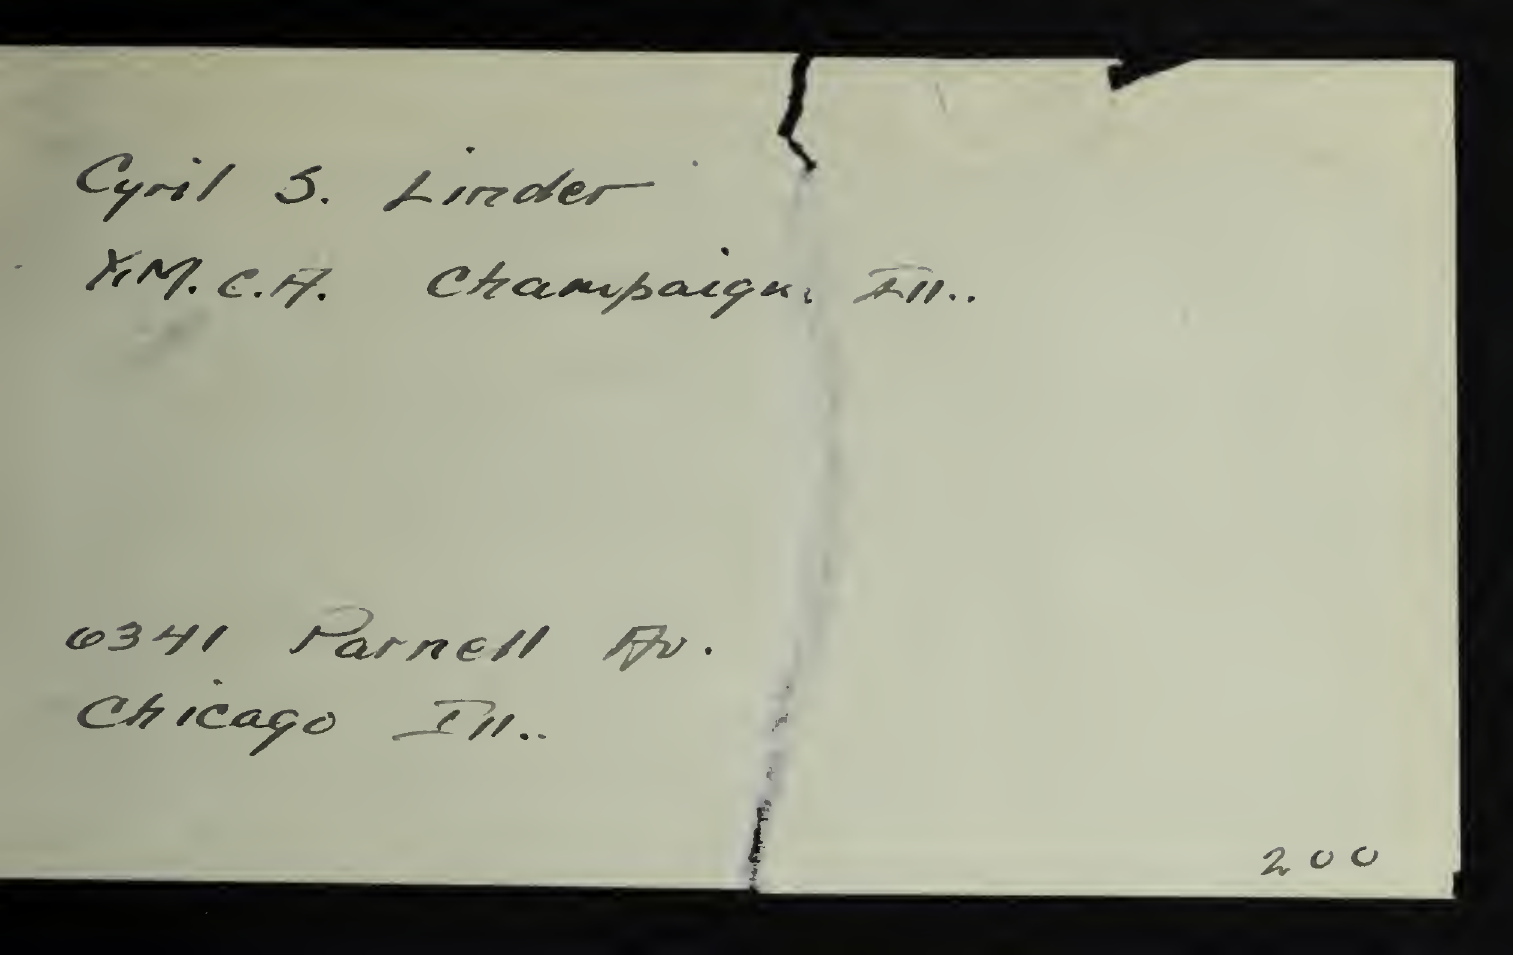 Cyril S. Linder
Y.M.C.A. Champaign, Ill..
6341 Parnell Av.
Chicago Ill..
200